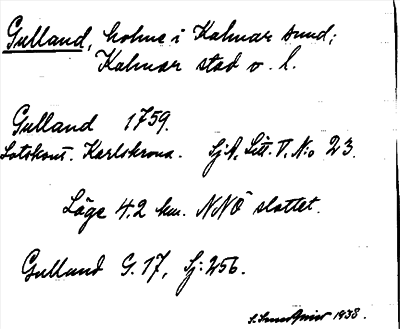 Gulland, holme i Kalmar sund;
Kalmar stad o. l.
Gulland 1759.
Lotskont. Karlskrona. SjA, Litt. V. No 23.
Läge 4,2 km. NNÖ slottet.
Gulland G. 17, Sj: 256.
1938.